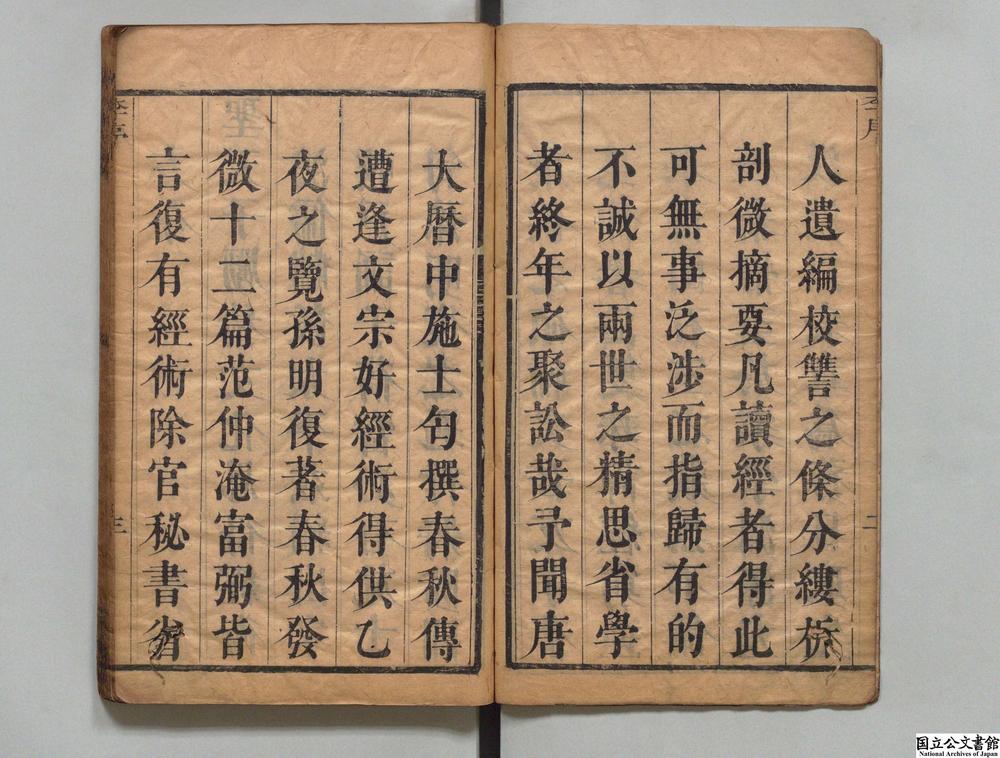 人遺編校讐之條分縷析
剖微摘要凡讀經者得此
可無事泛涉而指歸有的
不誠以兩世之精思省學
者終年之聚訟哉予聞唐
二
大曆中施士匄撰春秋傳
遭逢文宗好經術得供乙
夜之覽孫明復著春秋發
微十二篇范仲淹富弼皆
言復有經術除官秘書省
三
国立公文書館
National Archives of Japan